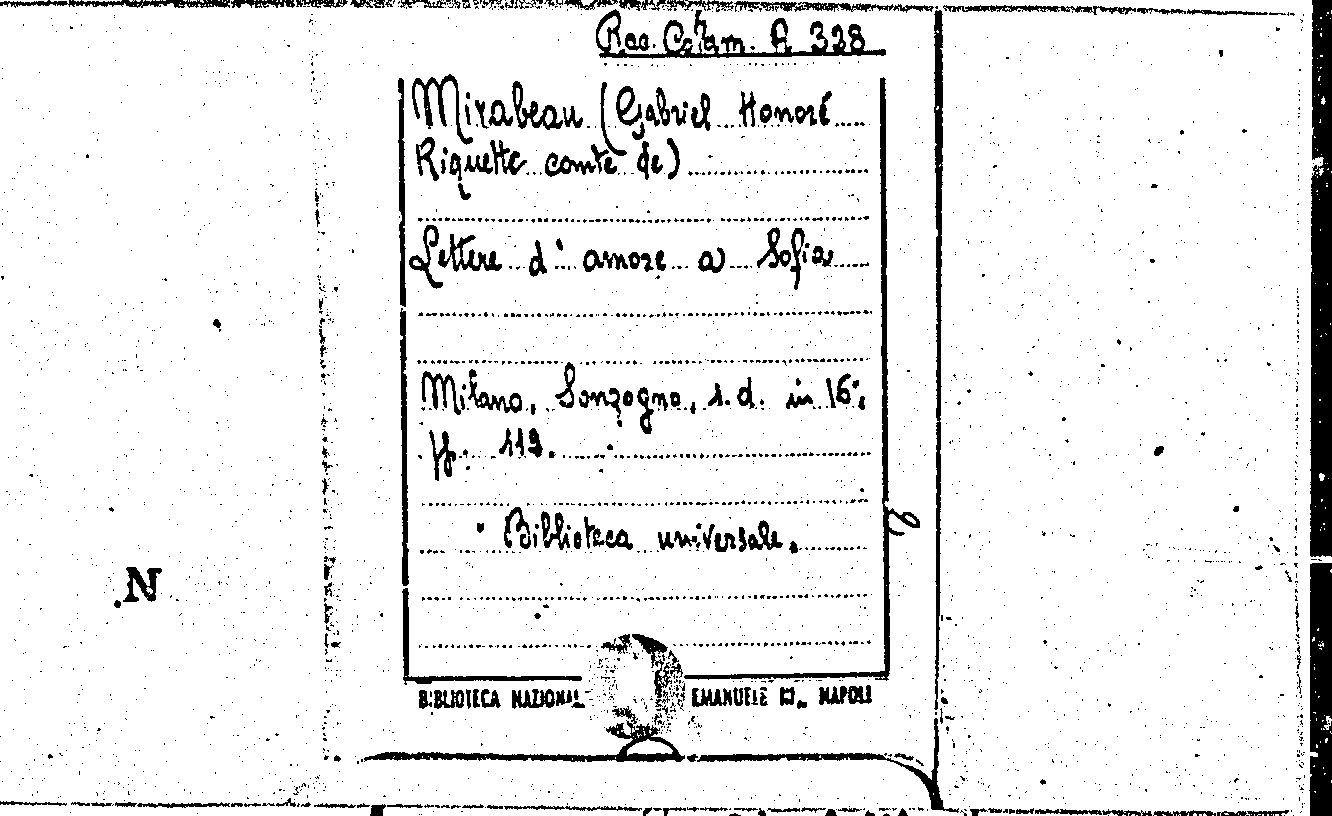 Rac. Colam. A 328
Mirabeau (Gabriel Honoré
Riquette comte de)
Lettere d'amore a Sofia
Milano, Sonzogno, s.d. in 16°;
pp. 119.
Biblioteca universale.
N
BIBLIOTECA NAZIONAL EMANUELE III„ NAPOLI